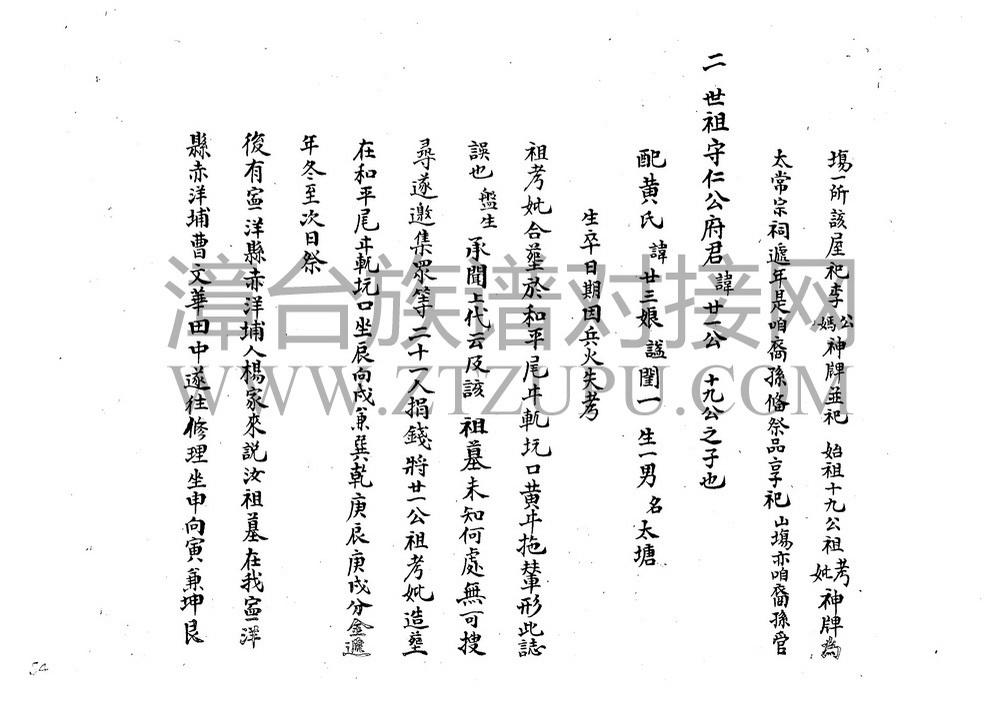 塲一所該屋祀李公媽神牌並祀 始祖十九公祖考妣神牌為
太常宗祠遞年是咱裔孫俻祭品享祀 山塲亦咱裔孫管
二世祖守仁公府君 諱廿一公 十九公之子也
配黃氏 諱廿三娘 諡閨一 生一男 名太塘
生卒日期因兵火失考
祖考妣合塟於和平尾斗軏坑口黄斗拖輦形此誌
誤也 盤生 承聞上代云及該 祖墓未知何處無可搜
尋遂邀集眾等二十一人捐錢將廿一公祖考妣造塟
在和平尾斗軏坑口坐辰向戌兼巽乾庚辰庚戌分金遞
年冬至次日祭
後有寍洋縣赤洋埔人楊家來説汝祖墓在我寍洋
縣赤洋埔曹文華田中遂往修理坐申向寅兼坤艮
54
漳台族谱对接网
WWW.ZTZUPU.COM